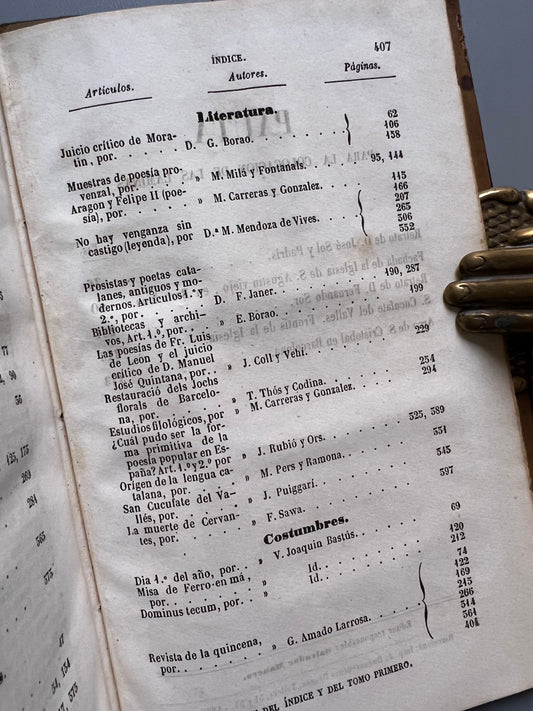 407
ÍNDICE.
Artículos. Autores. Páginas.
Literatura.
Juicio crítico de Mora-
tin, por. . . . . . D. G. Borao. . . . . . . . 62
106
158
Muestras de poesía pro-
venzal, por. . . . . » M. Milá y Fontanals. . . 95, 144
Aragon y Felipe II (poe-
sía), por. . . . . . » M. Carreras y Gonzalez. . . 145
No hay venganza sin
castigo (leyenda), por D.ª M. Mendoza de Vives. . . 166
207
265
506
552
Prosistas y poetas cata-
lanes, antiguos y mo-
dernos. Artículos 1.º y
2.º, por. . . . . . D. F. Janer. . . . . . . . 190, 287
Bibliotecas y archi-
vos, Art. 1.º, por. . . » E. Borao. . . . . . . . 199
Las poesías de Fr. Luis
de Leon y el juicio
crítico de D. Manuel
José Quintana, por. . . » J. Coll y Vehí. . . . . . 229
Restauració dels Jochs
florals de Barcelo-
na, por. . . . . . » T. Thós y Codina. . . . . 254
Estudios filológicos, por » M. Carreras y Gonzalez. . . 294
¿Cuál pudo ser la for-
ma primitiva de la
poesía popular en Es-
paña? Art. 1.º y 2.º por » J. Rubió y Ors. . . . . . 525, 589
Origen de la lengua ca-
talana, por. . . . . » M. Pers y Ramona. . . . . 551
San Cucufate del Va-
llés, por. . . . . . » J. Puiggarí. . . . . . . 545
La muerte de Cervan-
tes, por. . . . . . » F. Sawa. . . . . . . . 597
Costumbres.
Dia 1.º del año, por. . . » V. Joaquin Bastús. . . . . 69
Misa de Ferro-en má,
por. . . . . . . . » Id. . . . . . . . . 120
Dominus tecum, por. . . » Id. . . . . . . . . 212
Revista de la quincena,
por. . . . . . . . » G. Amado Larrosa. . . . . 74
122
169
215
266
514
561
404
DEL ÍNDICE Y DEL TOMO PRIMERO.
77
90
56
125, 175
269
284
565
575
47
54, 154
57, 575